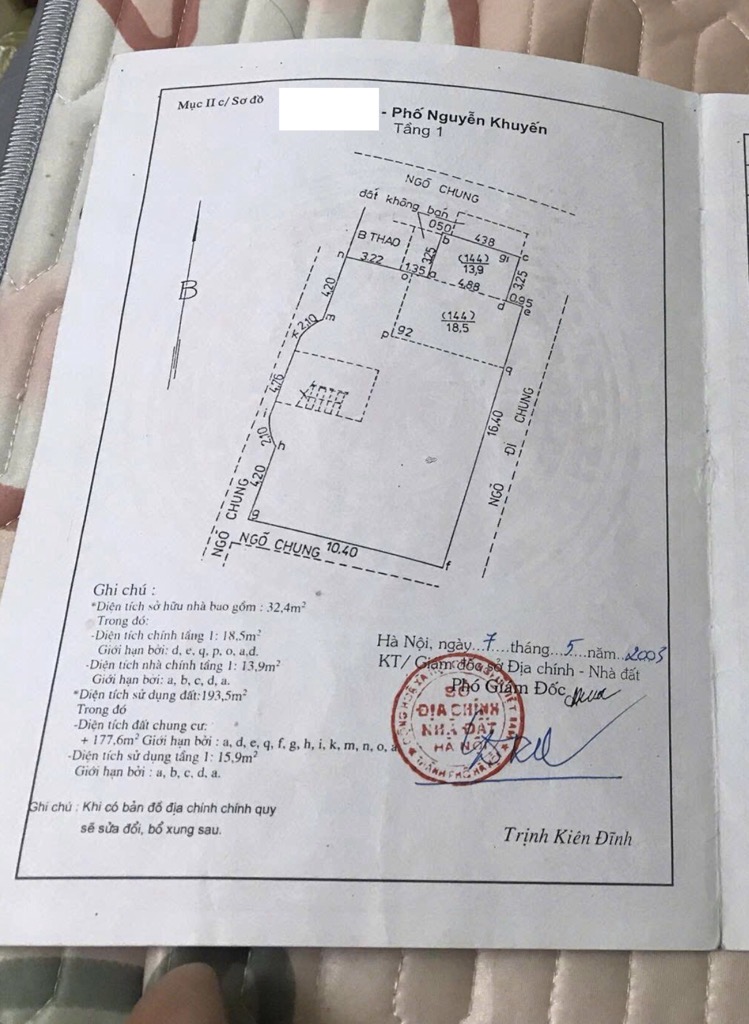 Mục II c/ Sơ đồ
- Phố Nguyễn Khuyến
Tầng 1
NGÕ CHUNG
đất không bán
050
b
438
g1
c
B THAO
325
(144)
13,9
3,25
n
3.22
o
1.35
a
4.88
d
0.95
e
4.20
m
(144)
18,5
B
K
2.10
p
92
q
4.76
16.40
NGÕ ĐI CHUNG
2.10
h
4.20
g
NGÕ CHUNG
NGÕ CHUNG 10.40
f
Ghi chú :
*Diện tích sở hữu nhà bao gồm : 32,4m²
Trong đó:
-Diện tích chính tầng 1: 18,5m²
Giới hạn bởi: d, e, q, p, o, a,d.
-Diện tích nhà chính tầng 1: 13,9m²
Giới hạn bởi: a, b, c, d, a.
*Diện tích sử dụng đất:193,5m²
Trong đó
-Diện tích đất chung cư:
+ 177,6m² Giới hạn bởi : a, d, e, q, f, g, h, i, k, m, n, o, a
-Diện tích sử dụng tầng 1: 15,9m²
Giới hạn bởi : a, b, c, d, a.
Ghi chú : Khi có bản đồ địa chính chính quy
sẽ sửa đổi, bổ xung sau.
Hà Nội, ngày...7....tháng...5....năm...2003
KT/ Giám đốc sở Địa chính - Nhà đất
Phó Giám Đốc
SỞ
ĐỊA CHÍNH
NHÀ ĐẤT
HÀ NỘI
THÀNH PHỐ HÀ NỘI
Trịnh Kiên Đĩnh